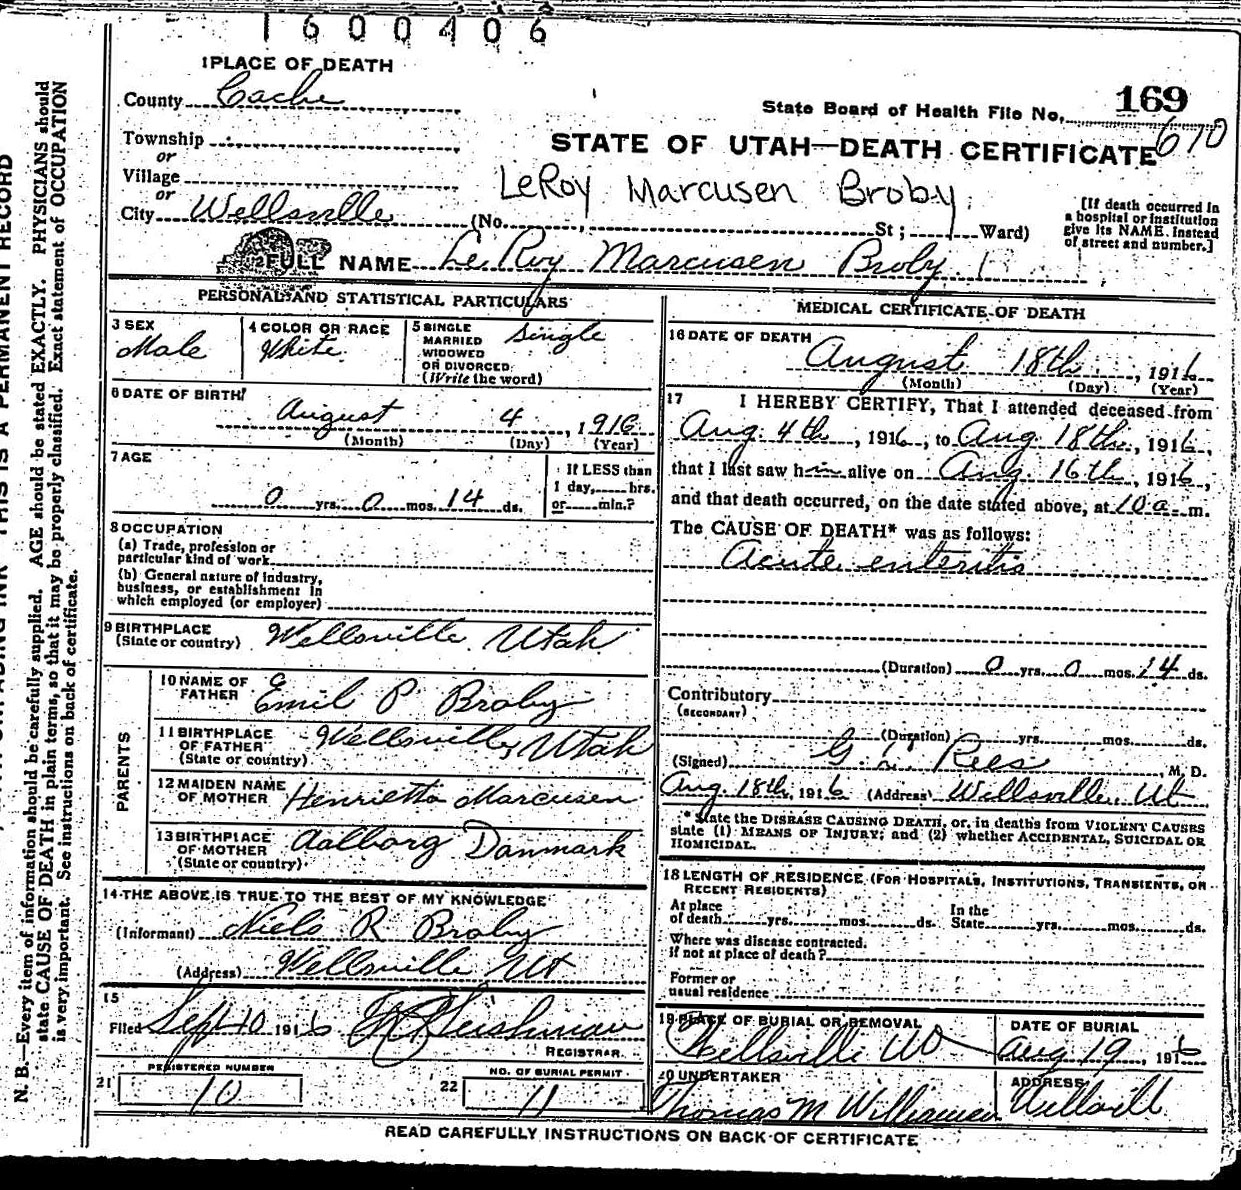 1600406
1 PLACE OF DEATH
County Cache
State Board of Health File No. 169
670
Township
or
STATE OF UTAH—DEATH CERTIFICATE
Village
or
LeRoy Marcusen Broby
City Wellsville (No. St; Ward)
[If death occurred in
a hospital or institution
give its NAME instead
of street and number.]
2 FULL NAME Le Roy Marcusen Broby
PERSONAL AND STATISTICAL PARTICULARS
3 SEX
Male
4 COLOR OR RACE
White
5 SINGLE
MARRIED
WIDOWED
OR DIVORCED
(Write the word)
Single
6 DATE OF BIRTH
August 4, 1916
(Month) (Day) (Year)
7 AGE
0 yrs. 0 mos. 14 ds.
If LESS than
1 day, hrs.
or min.?
8 OCCUPATION
(a) Trade, profession or
particular kind of work
(b) General nature of industry,
business, or establishment in
which employed (or employer)
9 BIRTHPLACE
(State or country) Wellsville Utah
PARENTS
10 NAME OF
FATHER Emil P Broby
11 BIRTHPLACE
OF FATHER
(State or country) Wellsville, Utah
12 MAIDEN NAME
OF MOTHER Henrietta Marcusen
13 BIRTHPLACE
OF MOTHER
(State or country) Aalborg Danmark
14 THE ABOVE IS TRUE TO THE BEST OF MY KNOWLEDGE
(Informant) Niels R Broby
(Address) Wellsville Ut
15
Filed Sept 10 1916
REGISTRAR.
21 REGISTERED NUMBER
10
22 NO. OF BURIAL PERMIT
11
MEDICAL CERTIFICATE OF DEATH
16 DATE OF DEATH
August 18th, 1916
(Month) (Day) (Year)
17 I HEREBY CERTIFY, That I attended deceased from
Aug. 4th, 1916, to Aug. 18th, 1916,
that I last saw him alive on Aug. 16th, 1916,
and that death occurred, on the date stated above, at 10 a m.
The CAUSE OF DEATH* was as follows:
Acute enteritis
(Duration) 0 yrs. 0 mos. 14 ds.
Contributory
(SECONDARY)
(Duration) yrs. mos. ds.
(Signed) G. L. Rees, M. D.
Aug. 18th, 1916 (Address) Wellsville, Ut
* State the DISEASE CAUSING DEATH, or, in deaths from VIOLENT CAUSES
state (1) MEANS OF INJURY; and (2) whether ACCIDENTAL, SUICIDAL OR
HOMICIDAL.
18 LENGTH OF RESIDENCE (FOR HOSPITALS, INSTITUTIONS, TRANSIENTS, OR
RECENT RESIDENTS)
At place
of death yrs. mos. ds.
In the
State yrs. mos. ds.
Where was disease contracted,
if not at place of death?
Former or
usual residence
19 PLACE OF BURIAL OR REMOVAL
Wellsville
DATE OF BURIAL
Aug 19, 1916
20 UNDERTAKER
Thomas M
ADDRESS
READ CAREFULLY INSTRUCTIONS ON BACK OF CERTIFICATE
THIS IS A PERMANENT RECORD
N. B.—Every item of information should be carefully supplied. AGE should be stated EXACTLY. PHYSICIANS should
state CAUSE OF DEATH in plain terms, so that it may be properly classified. Exact statement of OCCUPATION
is very important. See instructions on back of certificate.